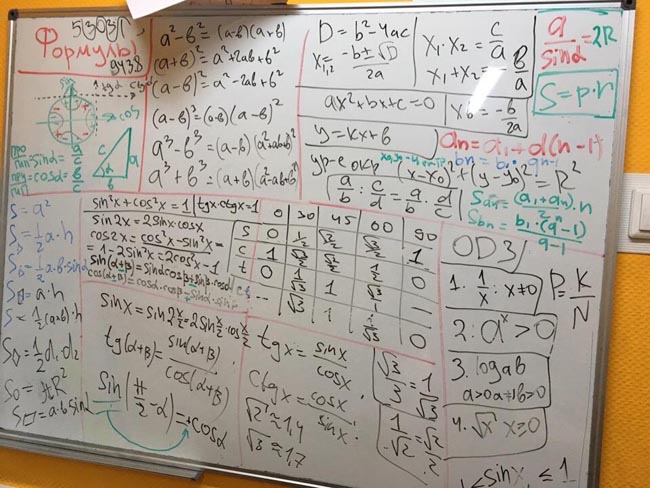 53031
Формулы
9438
a²-b²=(a-b)(a+b)
(a+b)²=a²+2ab+b²
(a-b)²=a²-2ab+b²
(a-b)²=(a-b)(a-b)
a³-b³=(a-b)(a²+ab+b²)
a³+b³=(a+b)(a²-ab+b²)
D=b²-4ac
x₁,₂=(-b±√D)/2a
x₁·x₂=c/a
x₁+x₂=-b/a
ax²+bx+c=0
x₀=-b/2a
y=kx+b
a/sinα=2R
S=p·r
an=a₁+d(n-1)
bn=b₁·qn-1
ур-е окр
(x-x₀)²+(y-y₀)²=R²
a/b:c/d=a/b·d/c
San=(a₁+an)·n
Sbn=b₁·(qⁿ-1)/q-1
sin
cos
sinα=a/c
cosα=b/c
S=a²
S=½a·h
S=½a·b·sinα
S=a·h
S=½(a+b)·h
S=½d₁d₂
S=πR²
S=a·b sinα
sin²x+cos²x=1
tgx·ctgx=1
sin2x=2sinx·cosx
cos2x=cos²x-sin²x=
=1-2sin²x=2cos²x-1
sin(α+β)=sinαcosβ+sinβ·cosα
cos(α+β)=cosα·cosβ-sinα·sinβ
0 30 45 60 90
s 0 1/2 √2/2 √3/2 1
sinx=sin2x/2=2sinx/2·cosx/2
tg(α+β)=sin(α+β)/cos(α+β)
Sin(π/2-α)=cosα
tgx=sinx/cosx
ctgx=cosx/sinx
√2≈1,4
√3≈1,7
√3/3=1/√3
1/√2=√2/2
ОДЗ
1. 1/x: x≠0
2. aˣ>0
3. logab
4. √x x≥0
P=K/N
≤sinx≤1